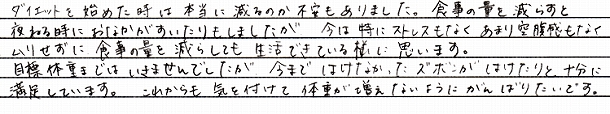 ダイエットを始めた時は本当に減るのか不安もありました。食事の量を減らすと
夜ねる時におなかがすいたりもしましたが 今は特にストレスもなくあまり空腹感もなく
ムリせずに食事の量を減らしても生活できている様に思います。
目標体重まではいきませんでしたが、今まではけなかったズボンがはけたりと、十分に
満足しています。これからも気を付けて体重が増えないようにがんばりたいです。